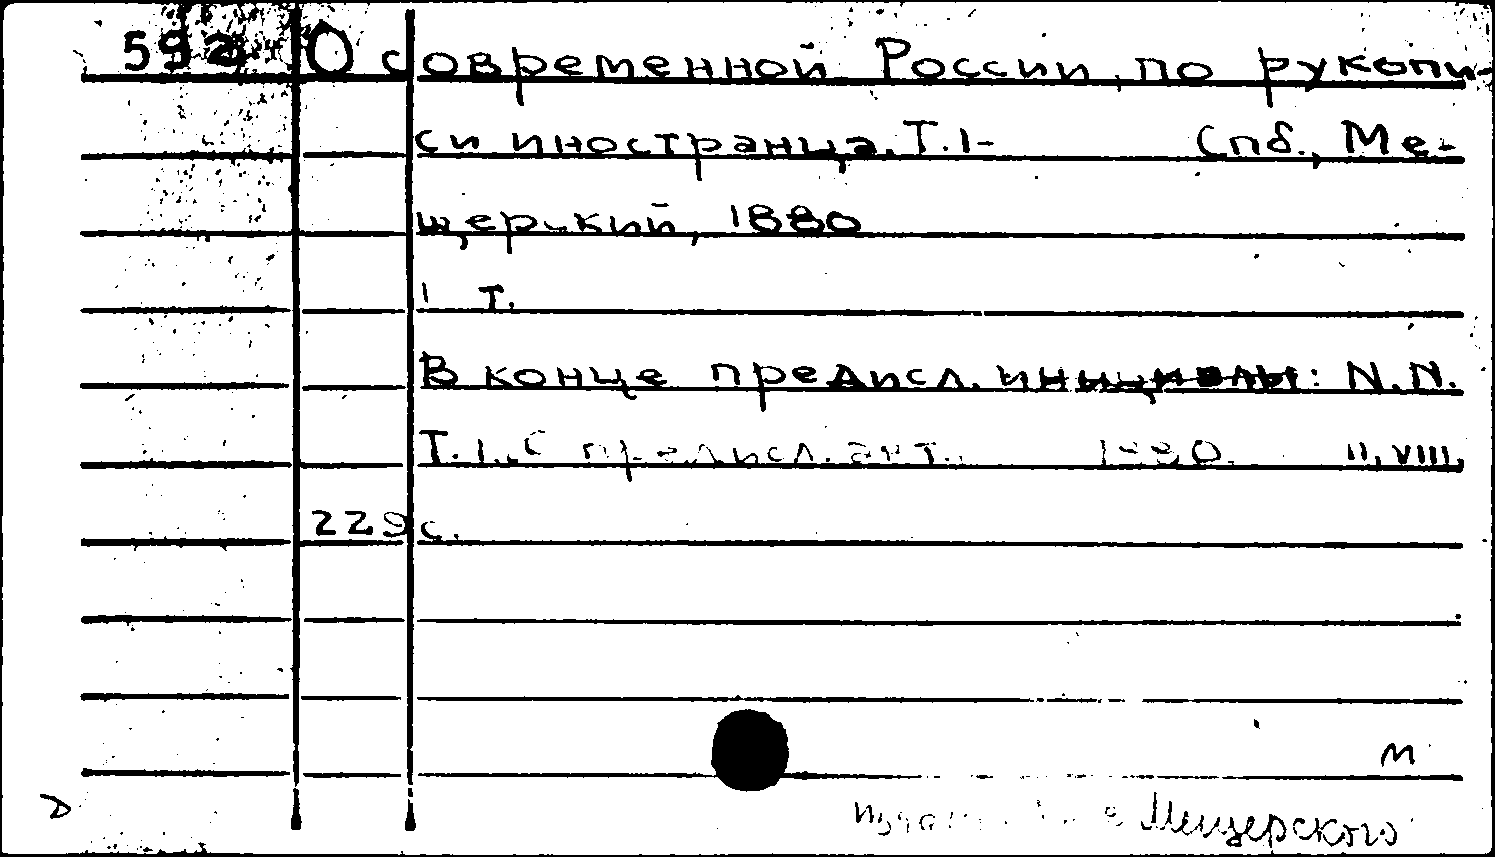 592 О современной России, по рукопи-
си иностранца. Т.1- Спб., Ме-
щерский, 1880
1 т.
В конце предисл. инициалы: N.N.
Т.1. С предисл. авт. 1880. II, VIII,
229 с.
м
Мещерского